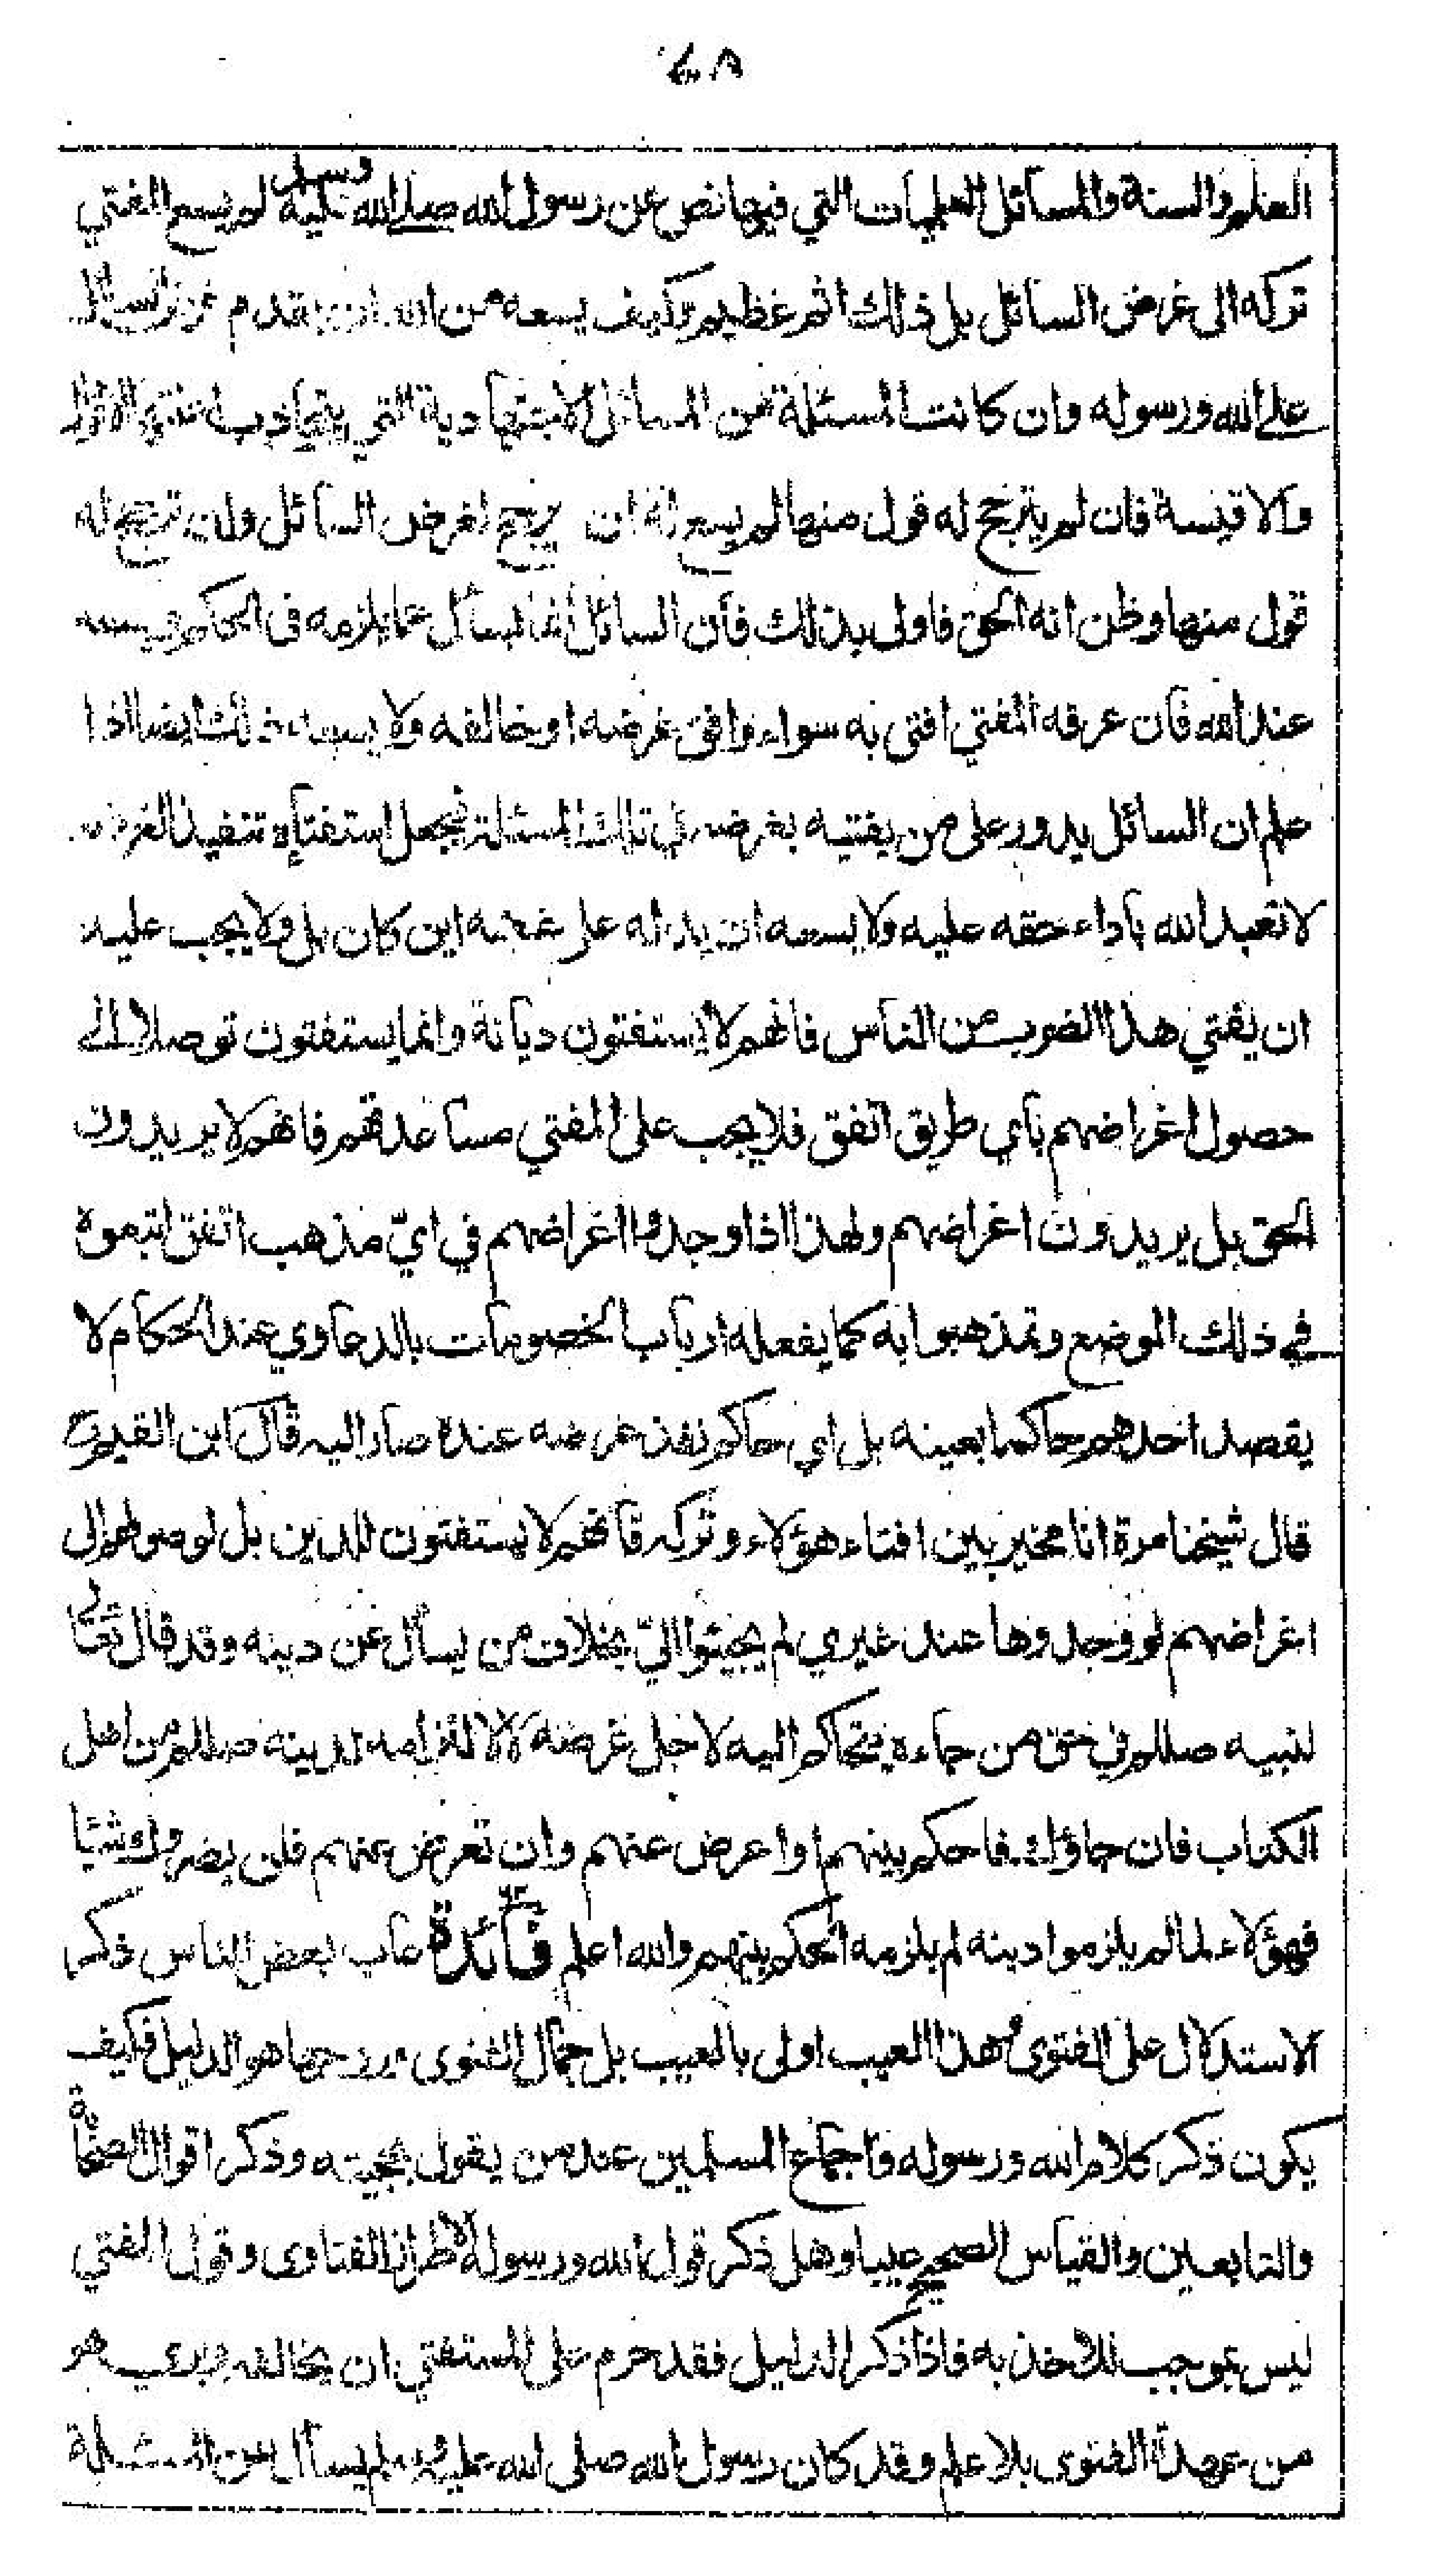 ٤٨
العلم والسنة والمسائل العلميات التي فيها نص عن رسول الله صلى الله عليه وسلم لم يسع المفتي
تركه الى غرض السائل بل ذلك اثم عظيم وكيف يسعه من الله ان يقدم غرض السائل
على الله ورسوله وان كانت المسئلة من المسائل الاجتهادية التي يتجاذب اعنتها الاقوال
والاقيسة فان لم يترجح له قول منها لم يسع له ان يرجح لغرض السائل وان ترجح له
قول منها وظن انه الحق فاولى بذلك فان السائل انما يسأل عما يلزمه فى الحكم ويسعه
عند الله فان عرفه المفتي افتى به سواء وافق غرضه او خالفه ولا يسعه ذلك ايضا اذا
علم ان السائل يدور على من يفتيه بغرضه في تلك المسئلة فيجعل استفتاءه تنفيذا لغرضه
لا تعبد الله بأداء حقه عليه ولا يسعه ان يدله على غرضه اين كان بل ولا يجب عليه
ان يفتي هذا الضرب من الناس فانهم لا يستفتون ديانة وانما يستفتون توصلا الى
حصول اغراضهم بأي طريق اتفق فلا يجب على المفتي مساعدتهم فانهم لا يريدون
الحق بل يريدون اغراضهم ولهذا اذا وجدوا اغراضهم في ايّ مذهب اتفق اتبعوه
في ذلك الموضع وتمذهبوا به كما يفعله ارباب الخصومات بالدعاوي عند الحكام لا
يقصد احدهم حاكما بعينه بل اي حاكم نفذ غرضه عنده صار اليه قال ابن القيم رح
قال شيخنا مرة انا مخير بين افتاء هؤلاء وتركه فانهم لا يستفتون للدين بل لوصولهم الى
اغراضهم لو وجدوها عند غيري لم يجيئوا اليّ بخلاف من يسأل عن دينه وقد قال تعالى
لنبيه صللم في حق من جاءه يتحاكم اليه لاجل غرضه لا لالتزامه لدينه صللم من اهل
الكتاب فان جاؤك فاحكم بينهم او اعرض عنهم وان تعرض عنهم فلن يضروك شيئا
فهؤلاء لما لم يلزموا دينه لم يلزمه الحكم بينهم والله اعلم فائدة عاب بعض الناس ذكر
الاستدلال على الفتوى وهذا العيب اولى بالعيب بل جمال الفتوى وروحها هو الدليل فكيف
يكون ذكر كلام الله ورسوله واجماع المسلمين عند من يقول بحجيته وذكر اقوال الصحابة
والتابعين والقياس الصحيح عيبا وهل ذكر قول الله ورسوله الا طراز الفتاوى وقول المفتي
ليس بموجب للاخذ به فاذا ذكر الدليل فقد حرم على المستفتي ان يخالفه وبرئ هو
من عهدة الفتوى بلا علم وقد كان رسول الله صلى الله عليه وسلم يسأل عن المسئلة